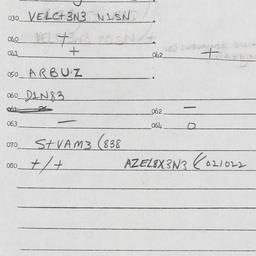 030 VELCT3N3 N1SN
040 +
041 + 042 +
050 ARBUZ
060 D1N83
061 062 —
063 — 064 0
070 S+VAM3 (838
080 +/+ AZEL8X3N3 ( 021022